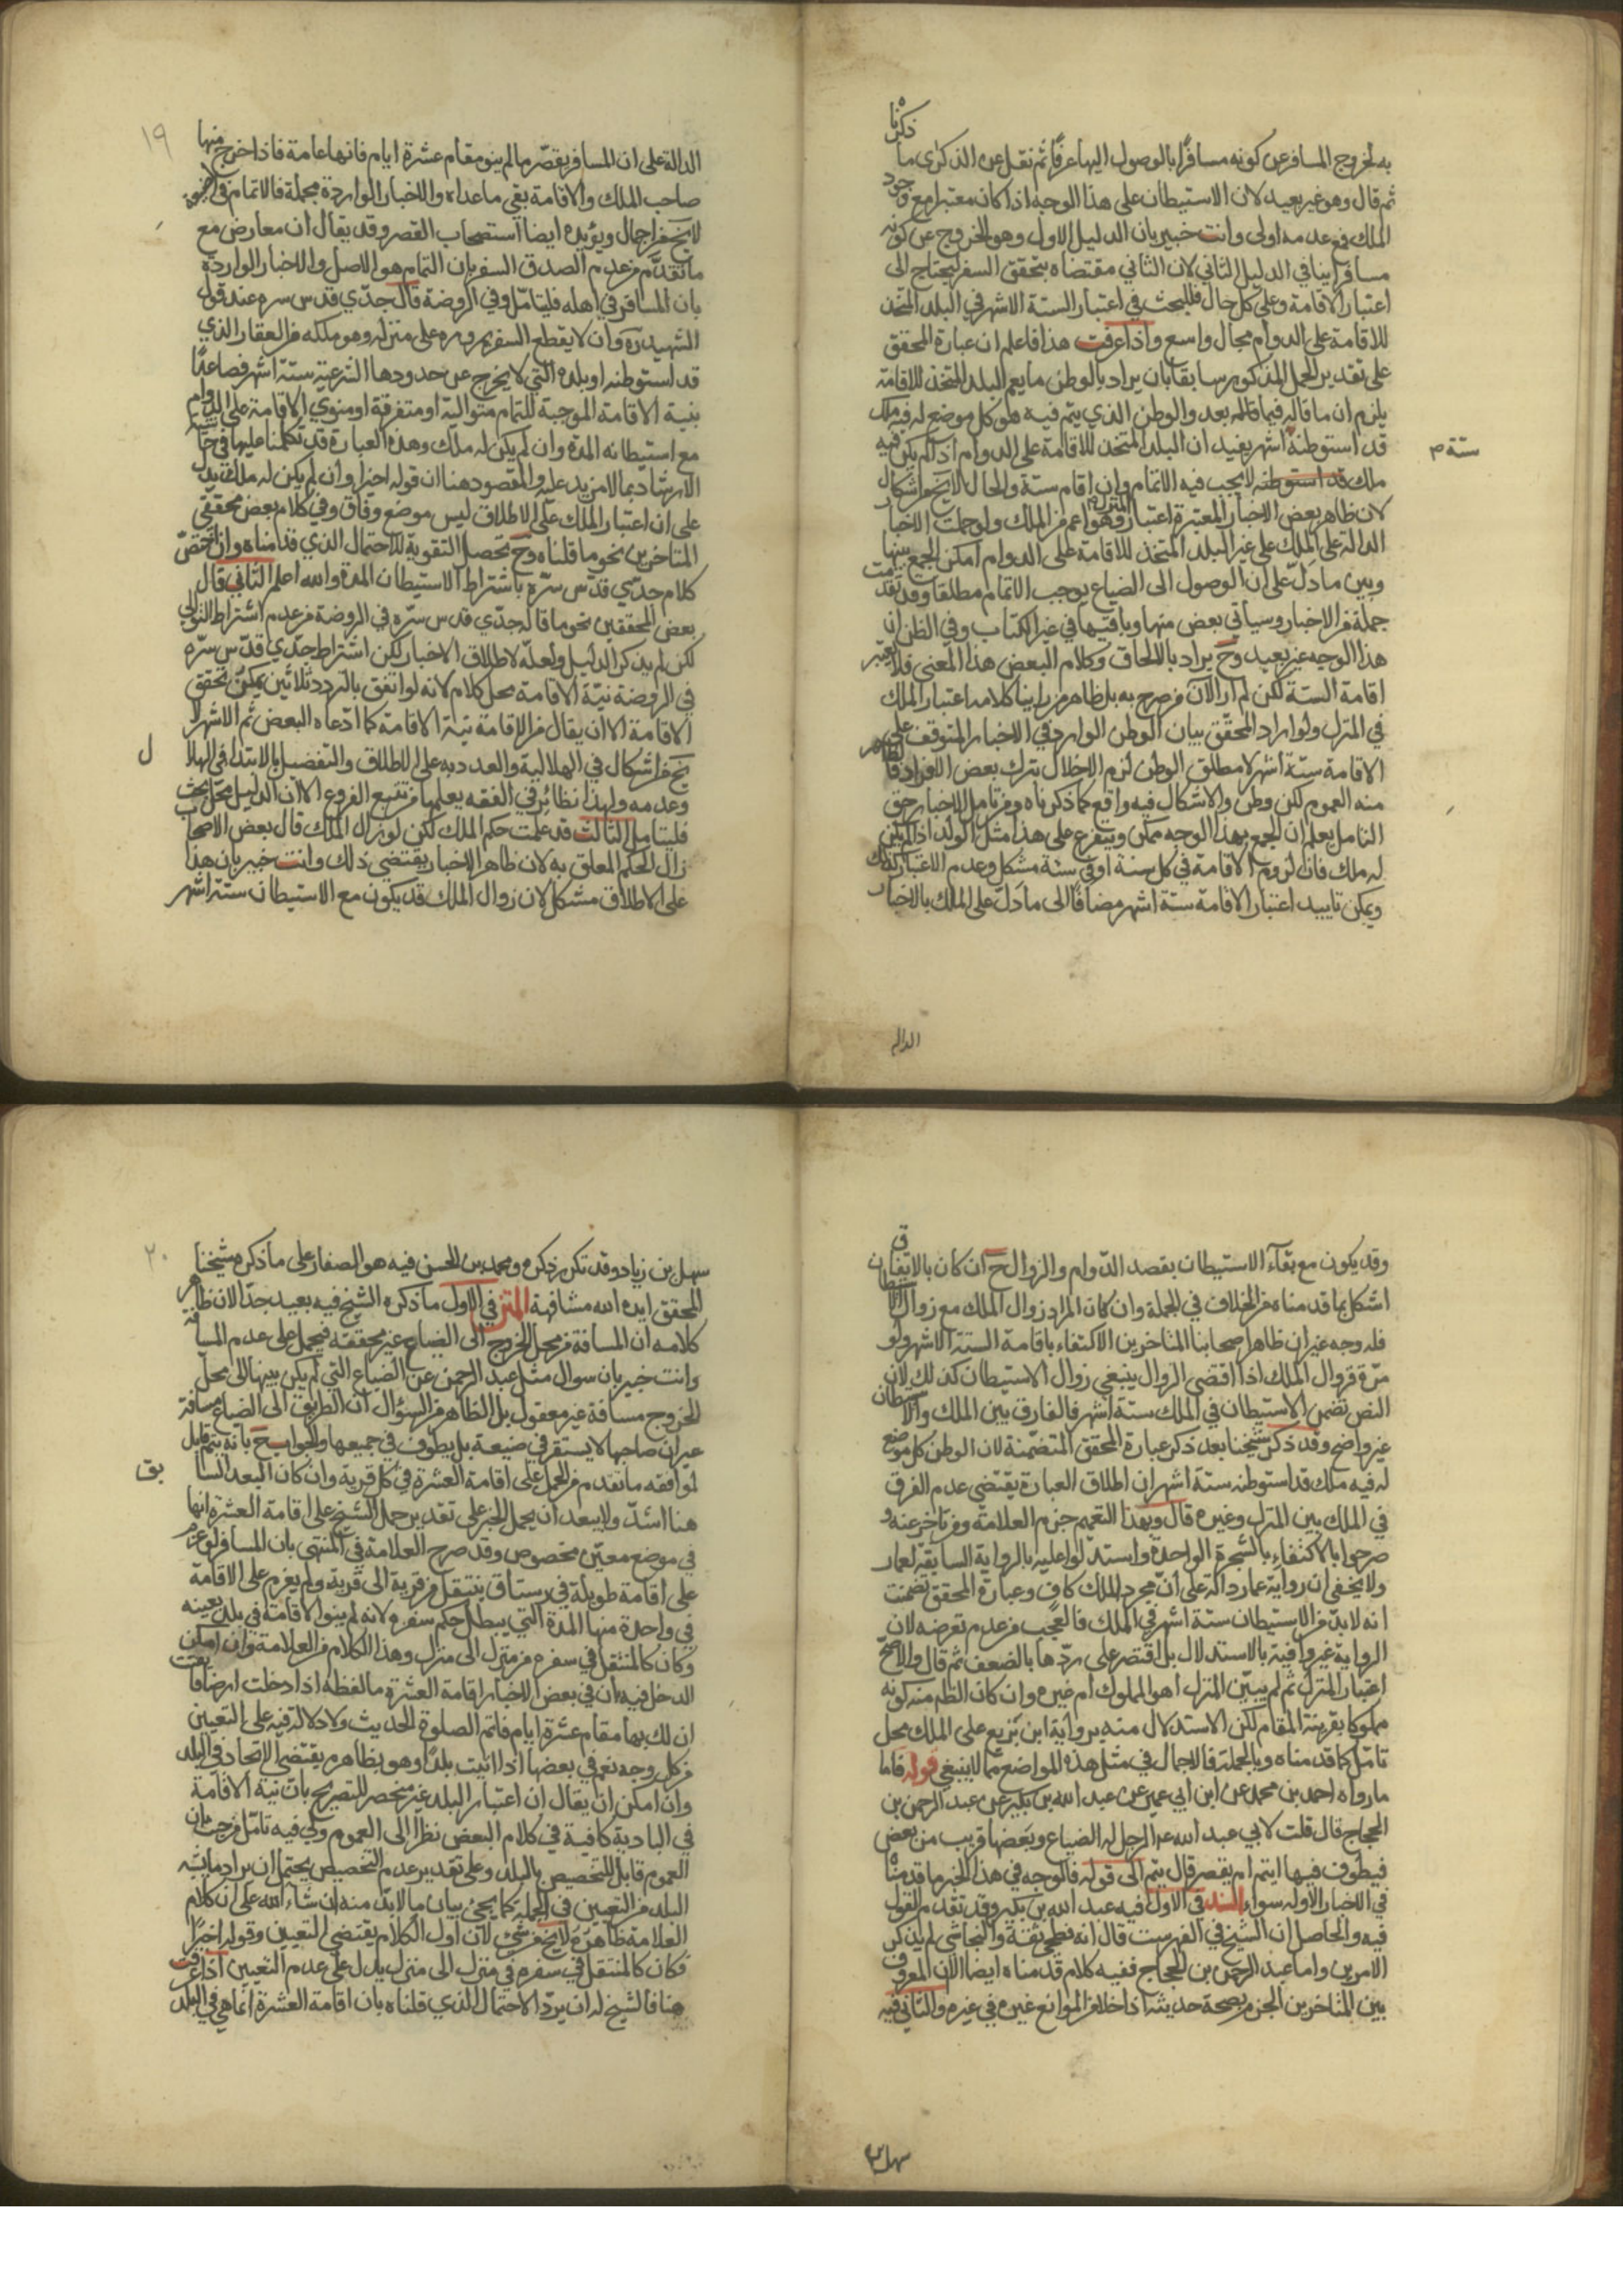 ذكرناه
به لخروج المسافر عن كونه مسافرًا بالوصول اليها عرفًا ثم نقل عن الذكرى ما
ثم قال وهو غير بعيد لان الاستيطان على هذا الوجه اذا كان معتبرا مع وجود
الملك فمع عدمه اولى وانت خبير بان الدليل الاول وهو الخروج عن كونه
مسافرا ينافي الدليل الثاني لان الثاني مقتضاه بتحقق السفر ليحتاج الى
اعتبار الاقامة وعلى كل حال فللبحث في اعتبار الستة الاشهر في البلد المتخذ
للاقامة على الدوام مجال واسع واذا عرفت هذا فاعلم ان عبارة المحقق
على تقدير الحمل المذكور سابقا بان يراد بالوطن ما يعم البلد المتخذ للاقامة
يلزم ان ما قاله فيما بعد والوطن الذي يتم فيه هو كل موضع له فيه ملك
قد استوطنه اشهر يفيد ان البلد المتخذ للاقامة على الدوام اذا لم يكن فيه
ستة م
ملك قد استوطنه لا يجب فيه الاتمام وان اقام ستة والحال لا يخ من اشكال
لان ظاهر بعض الاخبار المعتبرة اعتبار المنزل وهو اعم من الملك ولو حملت الاخبار
الدالة على الملك على غير البلد المتخذ للاقامة على الدوام امكن الجمع بينها
وبين ما دلّ على ان الوصول الى الضياع يوجب الاتمام مطلقا وقد تقدمت
جملة من الاخبار وسيأتي بعض منها وباقيها في غير الكتاب وفي الظن ان
هذا الوجه غير بعيد وح يراد باللحاق وكلام البعض هذا المعنى فلا يعتبر
اقامة الستة لكن لم ار الآن من صرح به بل ظاهر من راينا كلامه اعتبار الملك
في المنزل ولو اراد المحقق بيان الوطن الوارد في الاخبار المتوقف على
الاقامة ستة اشهر لا مطلق الوطن لزم الاخلال بترك بعض الافراد فالظاهر
منه العموم لكن وطن والاشكال فيه واقع كما ذكرناه ومن تامل الاخبار حق
التامل يعلم ان الجمع بهذا الوجه ممكن ويتفرع على هذا مثل الولد اذا لم يكن
له ملك فان لزوم الاقامة في كل سنة او في سنة مشكل وعدم الاعتبار كذلك
ويمكن تاييد اعتبار الاقامة ستة اشهر مضافًا الى ما دلّ على الملك بالاخبار
الداله
١٩
الدالة على ان المسافر يقصّر ما لم ينو مقام عشرة ايام فانها عامة فاذا خرج منها
صاحب الملك والاقامة بقي ما عداه والاخبار الواردة مجملة فالاتمام في
لا يخ من اجمال ويؤيده ايضا استصحاب القصر وقد يقال ان معارض مع
ما تقدّم من عدم الصدق السفر بان التمام هو الاصل والاخبار الواردة
بان المسافر في اهله فليتامّل وفي الروضة قال جدّي قدس سره عند قول
الشهيد ره وان لا يقطع السفر بمروره على منزله وهو ملكه من العقار الذي
قد استوطنه او بلده التي لا يخرج عن حدودها الشرعية ستة اشهر فصاعدًا
بنية الاقامة الموجبة للتمام متوالية او متفرقة او منوي الاقامة على الدوام
مع استيطانه المدة وان لم يكن له ملك وهذه العبارة قد تكلمنا عليها في
الارشاد بما لا مزيد عليه والمقصود هنا ان قوله اخيرا وان لم يكن له ملك يدل
على ان اعتبار الملك على الاطلاق ليس موضع وفاق وفي كلام بعض محققي
المتاخرين نحو ما قلناه وح تحصل التقوية للاحتمال الذي قدمناه وان اختصّ
كلام جدّي قدّس سرّه باشتراط الاستيطان المدة والله اعلم الثاني قال
بعض المحققين نحو ما قاله جدّي قدس سرّه في الروضة من عدم اشتراط التوالي
لكن لم يذكر الدليل ولعلّه لاطلاق الاخبار لكن اشتراط جدّي قدّس سرّه
في الروضة نيّة الاقامة محل كلام لانه لو اتفق بالتردد ثلاثين يمكن تحقق
الاقامة الا ان يقال من الاقامة نية الاقامة كما ادّعاه البعض ثم الاشهر لا
يخ من اشكال في الهلالية والعددية على الاطلاق والتفصيل بالابتداء في الهلا
ل
وعدمه ولهذا نظائر في الفقه يعلمها من تتبع الفروع الا ان الدليل محل بحث
فليتامل الثالث قد علمت حكم الملك لكن لو زال الملك قال بعض الاصحاب
زال الحكم المعلق به لان ظاهر الاخبار يقتضي ذلك وانت خبير بان هذا
على الاطلاق مشكل لان زوال الملك قد يكون مع الاستيطان ستة اشهر
وقد يكون مع بقاء الاستيطان بقصد الدّوام والزوال ح ان كان بالاتفاق
اشكل بما قدمناه من الخلاف في الجملة وان كان المراد زوال الملك مع زوال الاستيطان
فله وجه غير ان ظاهر اصحابنا المتاخرين الاكتفاء باقامة الستة الاشهر ولو
مرّة فزوال الملك اذا اقتضى الزوال ينبغي زوال الاستيطان كذلك لان
النص تضمن الاستيطان في الملك ستة اشهر فالفارق بين الملك والاستيطان
غير واضح وقد ذكر شيخنا بعد ذكر عبارة المحقق المتضمنة لان الوطن كل موضع
له فيه ملك قد استوطنه ستة اشهر ان اطلاق العبارة يقتضي عدم الفرق
في الملك بين المنزل وغيره قال وبهذا التعميم جزم العلامة ومن تاخر عنه و
صرحوا بالاكتفاء بالشجرة الواحدة واستدلّوا عليه بالرواية السابقة لعمار
ولا يخفى ان رواية عمار دالة على انّ مجرد الملك كاف وعبارة المحقق تضمنت
انه لا بدّ من الاستيطان ستة اشهر في الملك فالعجب من عدم تعرضه لان
الرواية غير وافية بالاستدلال بل اقتصر على ردّها بالضعف ثم قال والاصحّ
اعتبار المنزل ثم لم يبيّن المنزل اهو المملوك ام غيره وان كان الظ منه كونه
مملوكا بقرينة المقام لكن الاستدلال منه برواية ابن بزيع على الملك محل
تامّل كما قدمناه وبالجملة فالاجمال في مثل هذه المواضع مما لا ينبغي قوله فاما
ما رواه احمد بن محمد عن ابن ابي عمير عن عبد الله بن بكير عن عبد الرحمن بن
الحجاج قال قلت لابي عبد الله ع الرجل له الضياع وبعضها قريب من بعض
فيطوف فيها ايتم ام يقصر قال يتم الى قوله فالوجه في هذا الخبر ما قدمناه
في الاخبار الاوله سواء السند في الاول فيه عبد الله بن بكير وقد تقدم القول
فيه والحاصل ان الشيخ في الفهرست قال انه فطحي ثقة والنجاشي لم يذكر
الامرين واما عبد الرحمن بن الحجاج ففيه كلام قدمناه ايضا الا ان المعروف
بين المتاخرين الجزم بصحة حديثه اذا خلا من الموانع غيره في غيره والثاني فيه
سهل بن
٢٠
سهل بن زياد وقد تكرر ذكره ومحمد بن الحسن فيه هو الصفار على ما ذكره شيخنا
المحقق ايده الله مشافهة المتن في الاول ما ذكره الشيخ فيه بعيد جدّا لان ظاهر
كلامه ان المسافة من محل الخروج الى الضياع غير محققه فيحمل على عدم المسافة
وانت خبير بان سوال مثل عبد الرحمن عن الضياع التي لم يكن بينها الى محلّ
الخروج مسافة غير معقول بل الظاهر من السؤال ان الطريق الى الضياع مسافة
غير ان صاحبها لا يستقر في ضيعة بل يطوف في جميعها والجواب ح بانه يتم قابل
لموافقه ما تقدم من الحمل على اقامة العشرة في كل قرية وان كان البعد السا
بق
هنا اشدّ ولا يبعد ان يحمل الخبر على تقدير حمل الشيخ على اقامة العشرة انها
في موضع معيّن مخصوص وقد صرح العلامة في المنتهى بان المسافر لو عزم
على اقامة طويلة في رستاق ينتقل من قرية الى قرية ولم يعزم على الاقامة
في واحدة منها المدة التي يبطل حكم سفره لانه لم ينو الاقامة في بلد بعينه
وكان كالمنتقل في سفره من منزل الى منزل وهذا الكلام من العلامة وان امكن
الدخل فيه بان في بعض الاخبار اقامة العشرة ما لفظه اذا دخلت ارضا فايقنت
ان لك بها مقام عشرة ايام فاتم الصلوة الحديث ولا دلالة فيه على التعيين
من كل وجه نعم في بعضها اذا اتيت بلدًا وهو بظاهره يقتضي الاتحاد في البلد
وان امكن ان يقال ان اعتبار البلد غير منحصر للتصريح بانّ نية الاقامة
في البادية كافية في كلام البعض نظرًا الى العموم ولي فيه تامّل من حيث ان
العموم قابل للتخصيص بالبلد وعلى تقدير عدم التخصيص يحتمل ان يراد ما يشبه
البلد من التعيين في الجملة كما يجئ بيان ما لا بدّ منه ان شاء الله على ان كلام
العلامة ظاهره لا يخ من شئ لان اول الكلام يقتضي التعيين وقوله اخيرًا
فكان كالمنتقل في سفره في منزل الى منزل يدل على عدم التعيين اذا عرفت
هذا فالشيخ له ان يردّ الاحتمال الذي قلناه بان اقامة العشرة انما هي في البلد